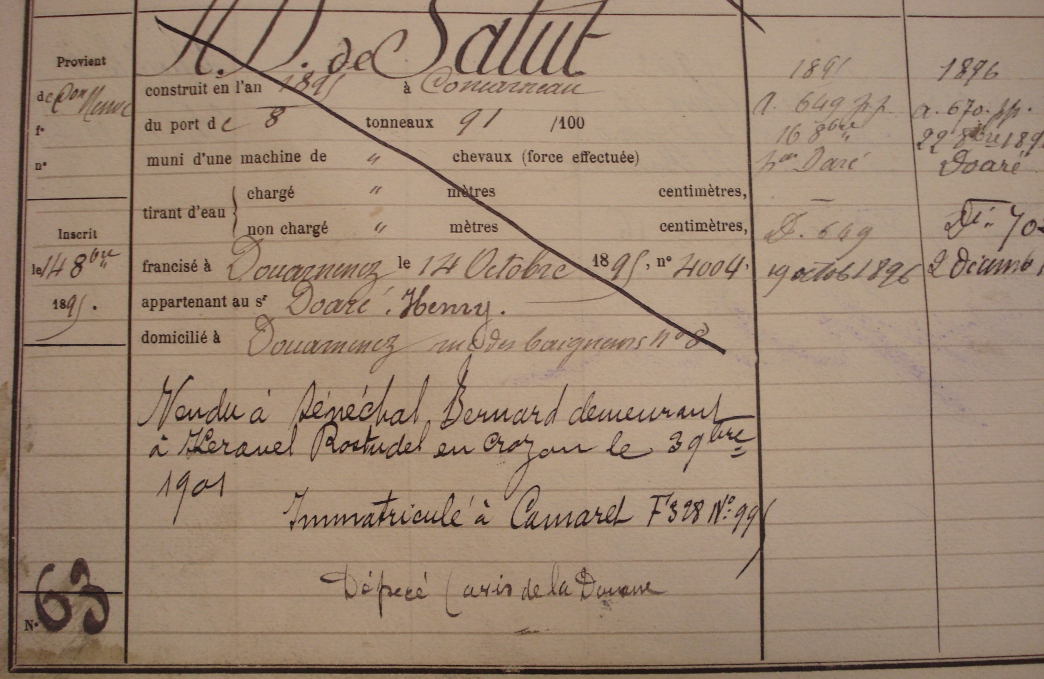 N. D. de Salut
Provient
de Don Neuve
f°
n°
construit en l'an 1895 à Concarneau
du port de 8 tonneaux 91 /100
muni d'une machine de " chevaux (force effectuée)
tirant d'eau { chargé " mètres centimètres,
non chargé " mètres centimètres,
Inscrit
le 14 8bre
1895.
francisé à Douarnenez le 14 Octobre 1895, n° 4004.
appartenant au sr Doaré Henry.
domicilié à Douarnenez rue des baigneurs n° 8
Vendu à Sénéchal Bernard demeurant
à Keravel Rostudel en Crozon le 3 9bre
1901
Immatriculé à Camaret F° 328 N° 99
Dépecé (avis de la Douane
N° 63
1895
a. 649 p.p.
16 8bre
Daré
D. 649
19 octob 1896
1896
a. 670. pp.
22 8bre 189
Doaré
Dt: 70
2 décemb